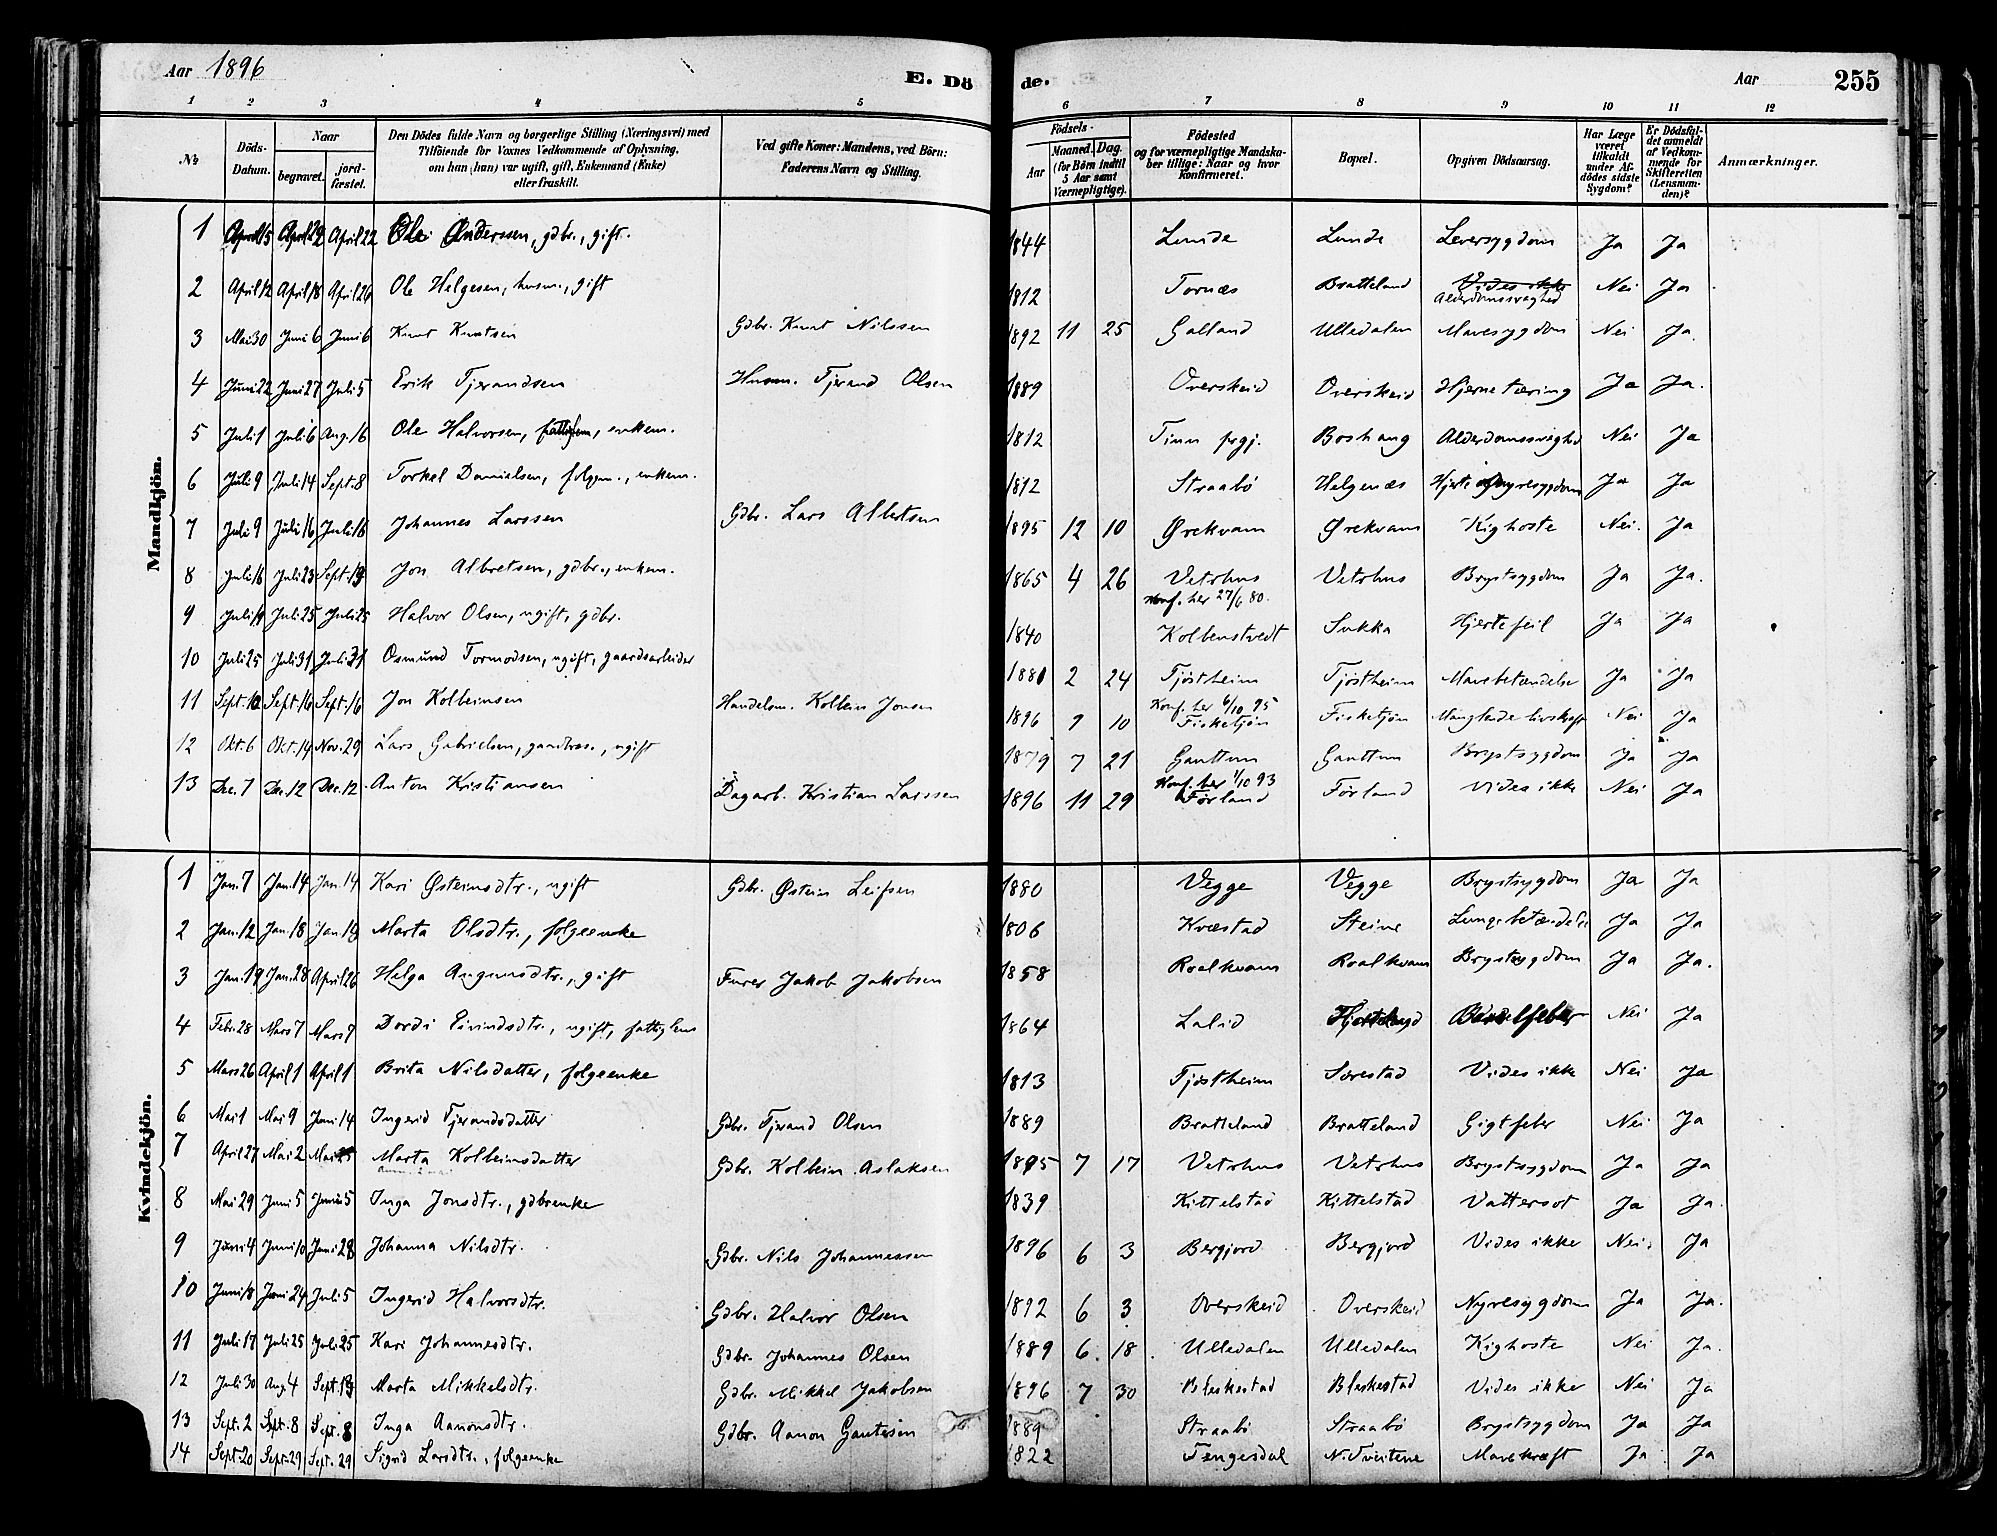 Aar 1896
E. Dö
de.
Aar
255
1 2 3 4 5 6 7 8 9 10 11 12
№ Döds-Datum. Naar begravet. jord-fæstet. Den Dödes fulde Navn og borgerlige Stilling (Næringsvei) med Tilföiende for Voxnes Vedkommende af Oplysning, om han (hun) var ugift, gift, Enkemand (Enke) eller fraskilt. Ved gifte Koner: Mandens, ved Börn: Faderens Navn og Stilling. Födsels- Aar Maaned. Dag. (for Börn indtil 5 Aar samt Værnepligtige). Födested og for værnepligtige Mandskaber tillige: Naar og hvor Konfirmeret. Bopæl. Opgiven Dödsaarsag. Har Læge været tilkaldt under Afdödes sidste Sygdom? Er Dödsfaldet anmeldt af Vedkommende for Skifteretten (Lensmanden)? Anmærkninger.
Mandkjön.
1 April 15 April 22 April 22 Ole Anderssen, gdbr., gift. 1844 Lunde Lunde Leversygdom Ja Ja
2 April 12 April 18 April 26 Ole Helgesen, husm., gift 1812 Tornæs Bratteland Vides ikke Alderdomssvaghed Nei Ja
3 Mai 30 Juni 6 Juni 6 Knut Knutsen Gdbr. Knut Nilssen 1892 11 25 Galland Ulledalen Mavesygdom Nei Ja.
4 Juni 22 Juni 27 Juli 5 Erik Tjerandsen Husm. Tjerand Olsen 1889 Overskeid Overskeid Hjernetæring Ja Ja.
5 Juli 1 Juli 6 Aug. 16 Ole Halvorsen, enkem. 1812 Tinn prgj. Boshaug Alderdomssvaghed Nei Ja
6 Juli 9 Juli 14 Sept. 8 Torkel Danielsen, folgem., enkem. 1812 Straabø Helgenæs Hjerte og Nyresygdom Ja Ja
7 Juli 9 Juli 16 Juli 16 Johannes Larssen Gdbr. Lars Albertsen 1895 12 10 Ørekvam Ørekvam Kighoste Nei. Ja
8 Juli 16 Juli 23 Sept. 13 Jon Albretsen, gdbr., enkem. 1865 4 26 Vetrhus Konf. her 27/6 80. Vetrhus Brystsygdom Ja Ja.
9 Juli 19 Juli 25 Juli 25 Halvor Olsen, ugift, gdbr. 1840 Kolbenstvedt Sukka Hjertefeil Ja Ja
10 Juli 25 Juli 31 Juli 31 Osmund Tormodsen, ugift, gaardsarbeider 1881 2 24 Tjøstheim Konf. her 6/10 95 Tjøstheim Mavebetændelse Ja Ja
11 Sept. 12 Sept. 16 Sept. 16 Jon Kolbeinsen Handelsm. Kolbein Jonsen 1896 9 10 Fisketjøn Fisketjøn Manglende livskraft Nei Ja
12 Okt. 6 Okt. 14 Nov. 29 Lars Gabrielsen, ugift 1879 7 21 Gauttun Konf. her 1/10 93 Gauttun Brystsygdom Ja Ja
13 Dec. 7 Dec. 12 Dec. 12 Anton Kristiansen Dagarb. Kristian Larssen 1896 11 29 Førland Førland Vides ikke Nei Ja
Kvindekjön.
1 Jan. 7 Jan. 14 Jan. 14 Kari Østeinsdtr., ugift Gdbr. Østein Leifsen 1880 Vegge Vegge Brystsygdom Ja Ja
2 Jan. 12 Jan. 18 Jan. 18 Marta Olsdtr., folgeenke 1806 Kvæstad Steine Lungebetændelse Ja Ja
3 Jan. 19 Jan. 28 April 26 Helga Aagunsdtr., gift Furer Jakob Jakobsen 1858 Roalkvam Roalkvam Brystsygdom Ja Ja.
4 Febr. 28 Mars 7 Mars 7 Dordi Eivindsdtr., ugift, fattiglem 1864 Lalid Barselfeber Nei Ja
5 Mars 26 April 1 April 1 Brita Nilsdatter, folgeenke 1813 Tjøstheim Sørestad Vides ikke Nei Ja
6 Mai 1 Mai 9 Juni 14 Ingerid Tjerandsdatter Gdbr. Tjerand Olsen 1889 Bratteland Bratteland Gigtfeber Nei Ja
7 April 27 Mai 2 Marta Kolbeinsdatter Gdbr. Kolbein Aslaksen 1895 7 17 Vetrhus Vetrhus Brystsygdom Ja Ja
8 Mai 29 Juni 5 Juni 5 Inga Jonsdtr., gdbrenke 1839 Kittelstad Kittelstad Vattersot Ja Ja.
9 Juni 4 Juni 10 Juni 28 Johanna Nilsdtr. Gdbr. Nils Johannessen 1896 6 3 Bergjord Bergjord Vides ikke Nei Ja
10 Juni 18 Juni 24 Juli 5 Ingerid Halvorsdtr. Gdbr. Halvor Olsen 1892 6 3 Overskeid Overskeid Nyresygdom Ja Ja.
11 Juli 17 Juli 25 Juli 25 Kari Johannesdtr. Gdbr. Johannes Olsen 1889 6 18 Ulledalen Ulledalen Kighoste Nei Ja.
12 Juli 30 Aug. 4 Sept. 13 Marta Mikkelsdtr. Gdbr. Mikkel Jakobsen 1896 7 30 Bleskestad Bleskestad Vides ikke Nei Ja
13 Sept. 2 Sept. 8 Sept. 8 Inga Aanonsdtr. Gdbr. Aanon Gautesen 1889 Straabø Straabø Brystsygdom Ja Ja
14 Sept. 20 Sept. 29 Sept. 29 Sigrid Larsdtr., folgeenke 1822 Tengesdal N. Tveitene Mavekræft Ja Ja